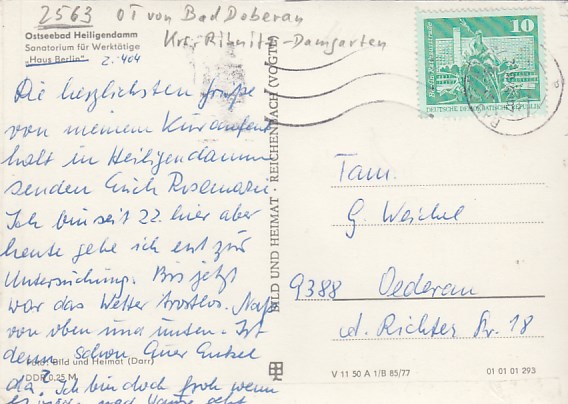 2563 OT von Bad Doberan
Krs. Ribnitz-Damgarten
Ostseebad Heiligendamm
Sanatorium für Werktätige
„Haus Berlin"
2.404
Die herzlichsten Grüße
von meinem Kuraufent
halt in Heiligendamm
senden Euch Rosemarie.
Ich bin seit 22. hier aber
heute gehe ich erst zur
Untersuchung. Bis jetzt
war das Wetter trostlos. Naß
von oben und unten. Ist
denn schon Euer Enkel
da? Ich bin doch froh wenn
es wieder nach Hause geht
Foto: Bild und Heimat (Darr)
DDR 0,25 M
BILD UND HEIMAT REICHENBACH (VOGTL)
10
DEUTSCHE DEMOKRATISCHE REPUBLIK
Fam.
G. Weichel
9388 Oederan
d. Richter Str. 18
V 11 50 A 1/B 85/77
01 01 01 293